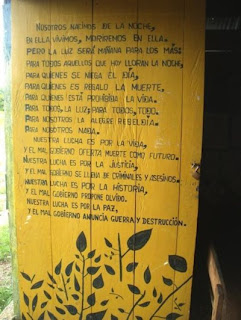 NOSOTROS NACIMOS DE LA NOCHE,
EN ELLA VIVIMOS, MORIREMOS EN ELLA.
PERO LA LUZ SERÁ MAÑANA PARA LOS MÁS:
PARA TODOS AQUELLOS QUE HOY LLORAN LA NOCHE,
PARA QUIENES SE NIEGA EL DÍA,
PARA QUIENES ES REGALO LA MUERTE,
PARA QUIENES ESTÁ PROHIBIDA LA VIDA.
PARA TODOS LA LUZ; PARA TODOS, TODO.
PARA NOSOTROS LA ALEGRE REBELDÍA.
PARA NOSOTROS NADA.
NUESTRA LUCHA ES POR LA VIDA,
Y EL MAL GOBIERNO OFERTA MUERTE COMO FUTURO.
NUESTRA LUCHA ES POR LA JUSTICIA,
Y EL MAL GOBIERNO SE LLENA DE CRIMINALES Y ASESINOS.
NUESTRA LUCHA ES POR LA HISTORIA,
Y EL MAL GOBIERNO PROPONE OLVIDO.
NUESTRA LUCHA ES POR LA PAZ,
Y EL MAL GOBIERNO ANUNCIA GUERRA Y DESTRUCCIÓN.